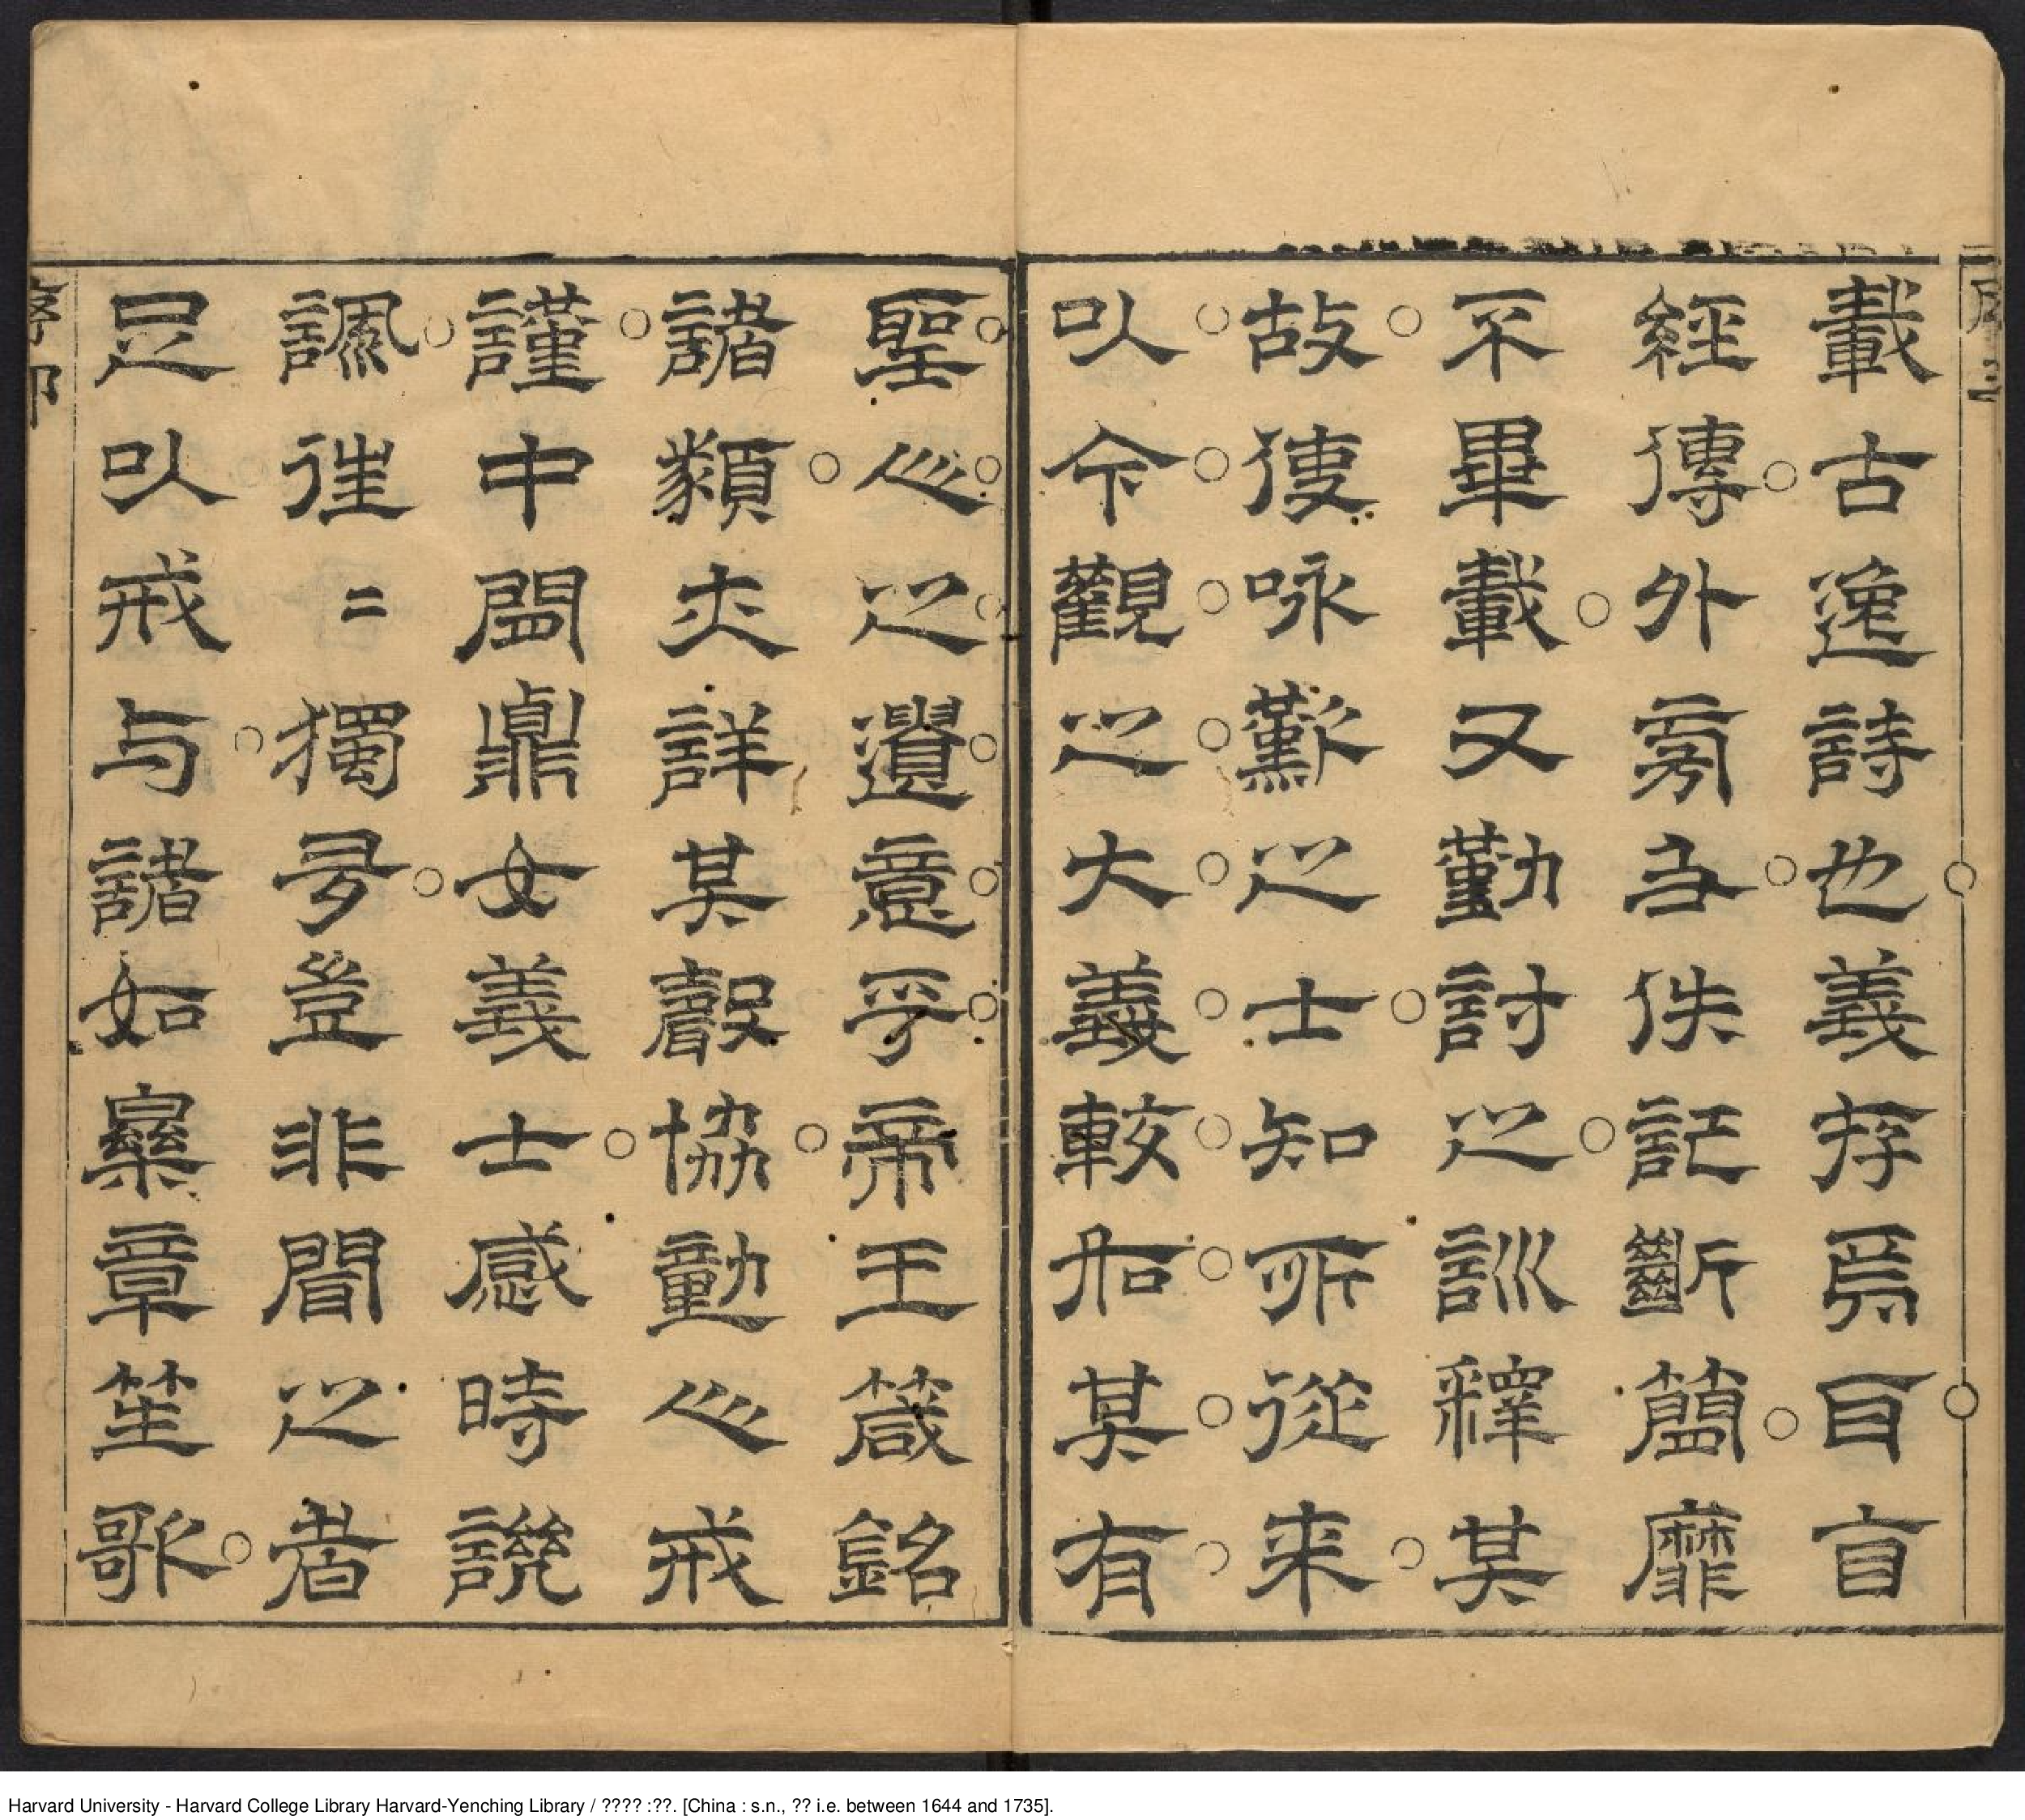 載古逸詩也義存焉目盲
經傳外旁及佚記斷簡靡
不畢載又勤討之訓釋其
故復咏歎之士知所從来
以今觀之大義較然其有
聖心之遺意乎帝王箴銘
諸類夫詳其聲協動心戒
謹中閨鼎女義士感時譏
諷往〻獨多豈非閒之者
足以戒与諸如樂章笙歌
Harvard University - Harvard College Library Harvard-Yenching Library / ???? :??. [China : s.n., ?? i.e. between 1644 and 1735].